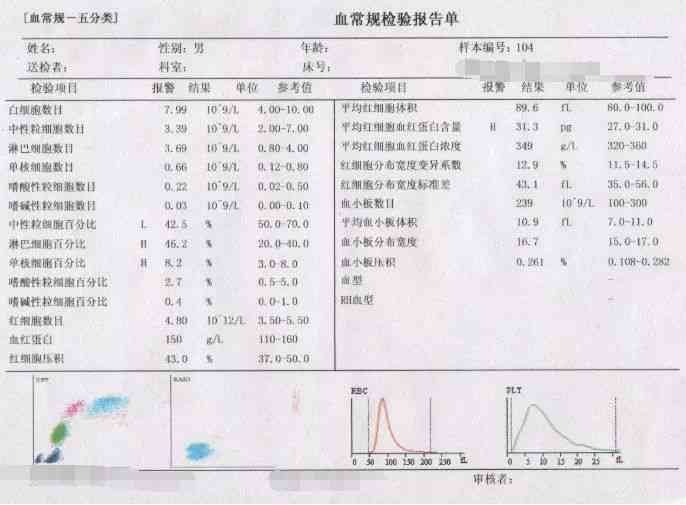 [血常规一五分类]
血常规检验报告单
姓名: 性别: 男 年龄: 样本编号: 104
送检者: 科室: 床号:
检验项目 报警 结果 单位 参考值 检验项目 报警 结果 单位 参考值
白细胞数目 7.99 10^9/L 4.00-10.00 平均红细胞体积 89.6 fL 80.0-100.0
中性粒细胞数目 3.39 10^9/L 2.00-7.00 平均红细胞血红蛋白含量 H 31.3 pg 27.0-31.0
淋巴细胞数目 3.69 10^9/L 0.80-4.00 平均红细胞血红蛋白浓度 349 g/L 320-360
单核细胞数目 0.66 10^9/L 0.12-0.80 红细胞分布宽度变异系数 12.9 % 11.5-14.5
嗜酸性粒细胞数目 0.22 10^9/L 0.02-0.50 红细胞分布宽度标准差 43.1 fL 35.0-56.0
嗜碱性粒细胞数目 0.03 10^9/L 0.00-0.10 血小板数目 239 10^9/L 100-300
中性粒细胞百分比 L 42.5 % 50.0-70.0 平均血小板体积 10.9 fL 7.0-11.0
淋巴细胞百分比 H 46.2 % 20.0-40.0 血小板分布宽度 16.7 15.0-17.0
单核细胞百分比 H 8.2 % 3.0-8.0 血小板压积 0.261 % 0.108-0.282
嗜酸性粒细胞百分比 2.7 % 0.5-5.0 血型 -
嗜碱性粒细胞百分比 0.4 % 0.0-1.0 RH血型 -
红细胞数目 4.80 10^12/L 3.50-5.50
血红蛋白 150 g/L 110-160
红细胞压积 43.0 % 37.0-50.0
BASO RBC PLT
0 50 100 150 200 250 fL 0 5 10 15 20 25 fL
审核者: